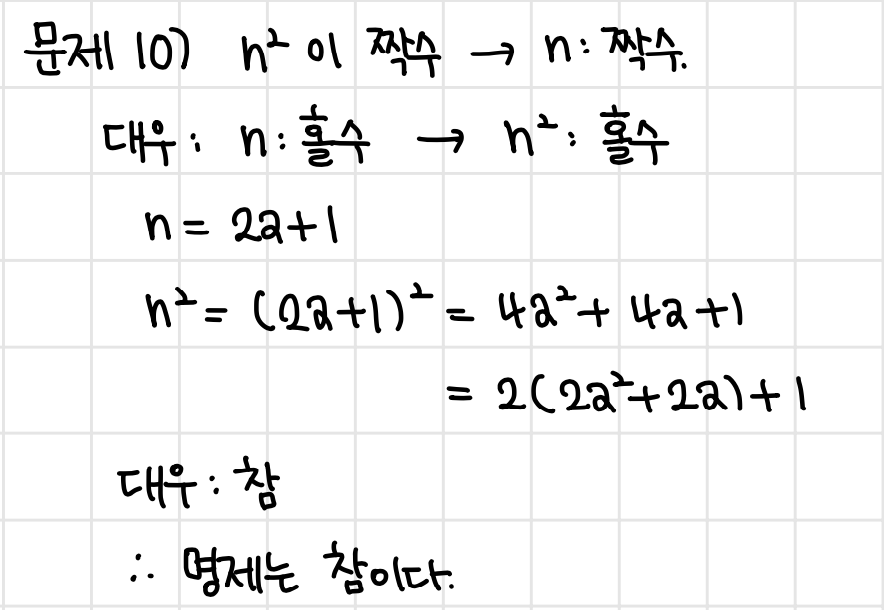 문제 10) n² 이 짝수 → n: 짝수.
대우: n: 홀수 → n²: 홀수
n = 2a+1
n² = (2a+1)² = 4a² + 4a + 1
= 2(2a²+2a)+1
대우: 참
∴ 명제는 참이다.